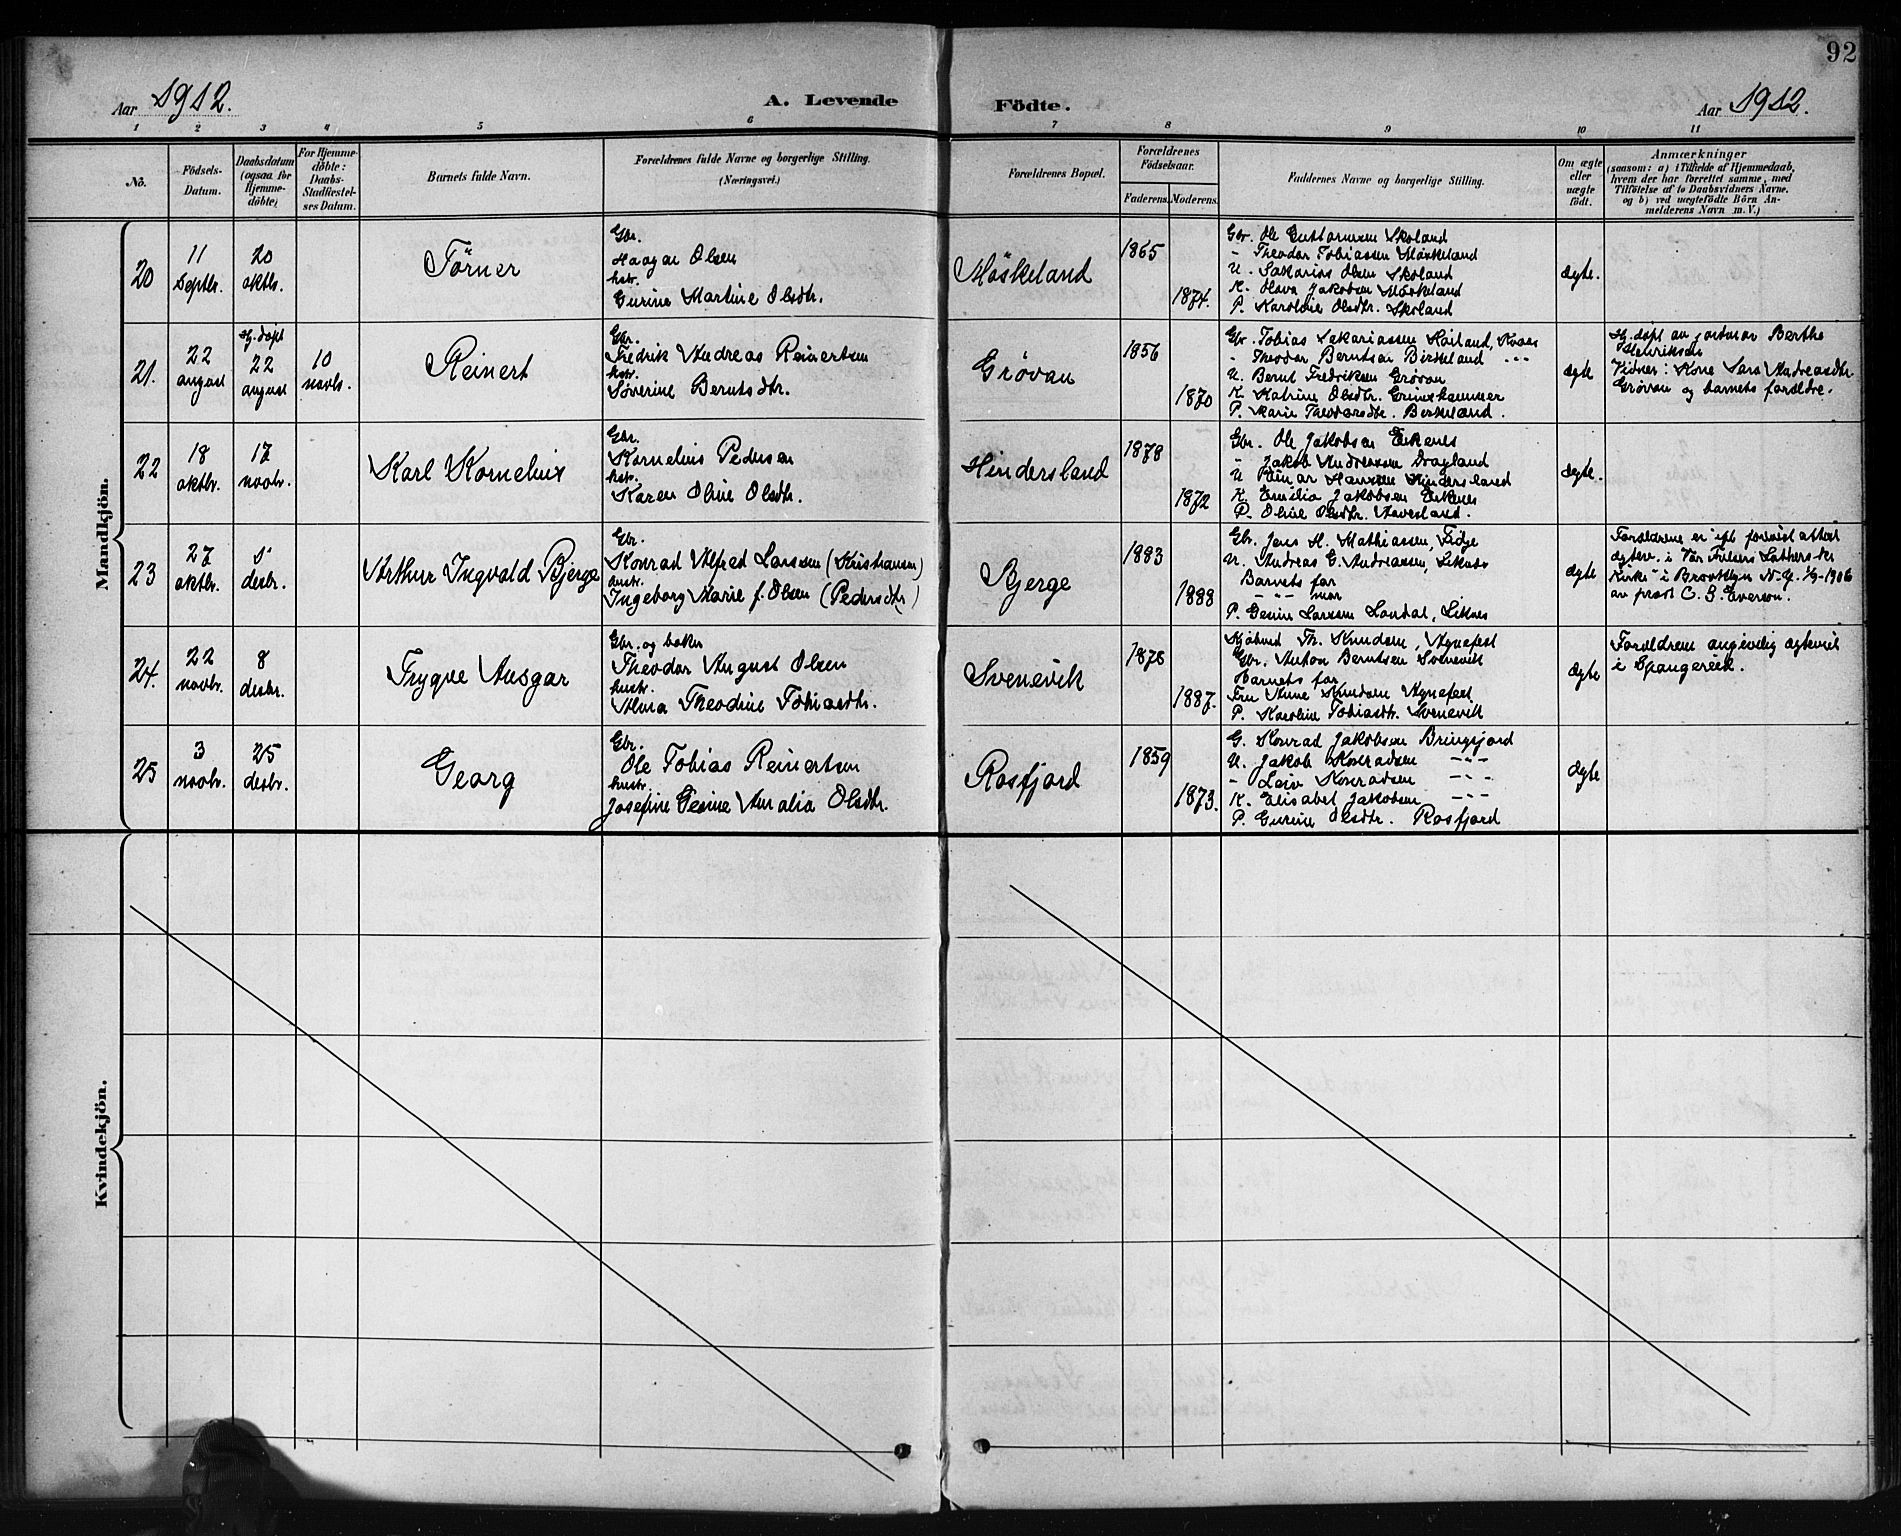 92
Aar 1912.
A. Levende
Fødte.
Aar 1912.
1 2 3 4 5 6 7 8 9 10 11
No.
Födsels-
Datum.
Daabsdatum
(ogsaa for
Hjemme-
döbte)
For Hjemme-
döbte:
Daabs-
Stadfæstel-
ses Datum.
Barnets fulde Navn.
Forældrenes fulde Navne og borgerlige Stilling.
(Næringsvei.)
Forældrenes Bopæl.
Forældrenes
Födselsaar.
Faderens.
Moderens.
Faddernes Navne og borgerlige Stilling.
Om ægte
eller
uægte
födt.
Anmærkninger
(saasom: a) i Tilfælde af Hjemmedaab,
hvem der har forrettet samme, med
Tilföielse af to Daabsvidners Navne,
og b) ved uægtefödte Börn An-
melderens Navn m. V.)
Mandkjön.
20
11
Septbr.
20
oktbr.
Törner
Gbr.
Haagar Olsen
hstr.
Gurine Martine Olsdtr.
Möskeland
1865
1874.
Gbr. Ole Guttormsen Skoland
- Theodor Tobiassen Möskeland
U. Sakarias Olsen Skoland
K. Olava Jakobsen Möskeland
P. Karoline Olsdtr. Skoland
ægte.
21.
22
august
Hj. døpt
22
august
10
novbr.
Reinert
Gbr.
Fredrik Andreas Reinertsen
hstr.
Severine Berntsdtr.
Grøvan
1856
1870
Gbr. Tobias Sakariassen Høiland, Kvaas
- Theodor Berntsen Birkeland -"-
U. Bernt Fredriksen Grøvan
K. Katrine Olsdtr.
P. Marie Theodorsdtr. Birkeland.
ægte
Hj. døpt av jordmor Berthe
Henriksen
Vidner: Kone Sara Andreasdtr.
Grøvan og barnets forældre.
22
18
oktbr.
17
novbr.
Karl Kornelius
Gbr.
Kornelius Pedersen
hstr.
Karen Oline Olsdtr.
Hindersland
1878
1872
Gbr. Ole Jakobsen Eikenes
- Jakob Andreassen Dragland
U Einar Hansen Hindersland
K. Emilie Jakobsen Eikenes
P. Oline Olsdtr. Aavesland.
ægte.
23
27
oktbr.
5
desbr.
Arthur Ingvald Bjerge
Gbr.
Konrad Alfred Larssen (Kristiansen)
hustr.
Ingeborg Marie f. Olsen (Pedersdtr)
Bjerge
1883
1888
Gbr. Jens H. Mathiassen, Fidje
U. Andreas G. Andreassen, Liknes
Barnets far
-"- mor
P. Gesine Larsen Londal, Liknes
ægte
Forældrene er ifl. forevist attest
ægtev. i Vor Frelsers Lutherske
Kirke" i Brooklyn N.Y. 1/9-1906
av prest C. S. Everson.
24.
22
novbr.
8
desbr.
Trygve Ansgar
Gbr. og baker
Theodor August Olsen
hustr.
Alma Theodine Tobiasdtr.
Svenevik
1878
1887.
Kjöbmd Th. Knudsen, Agnefest
Gbr. Anton Berntsen Svenevik
Barnets far
Fru Anne Knudsen Agnefest
P. Karoline Tobiasdtr. Svenevik
ægte
Forældrene angivelig ægteviet
i Spangereid.
25
3
novbr.
25
desbr.
Georg
Gbr.
Ole Tobias Reinertsen
hustr.
Josefine Gesine Amalia Olsdtr.
Rosfjord
1859
1873.
G. Konrad Jakobsen Bringsjord
U. Jakob Konradsen -"-
- Leiv Konradsen -"-
K. Elisabet Jakobsen -"-
P. Gurine Olsdtr. Rosfjord
ægte
Kvindekjön.